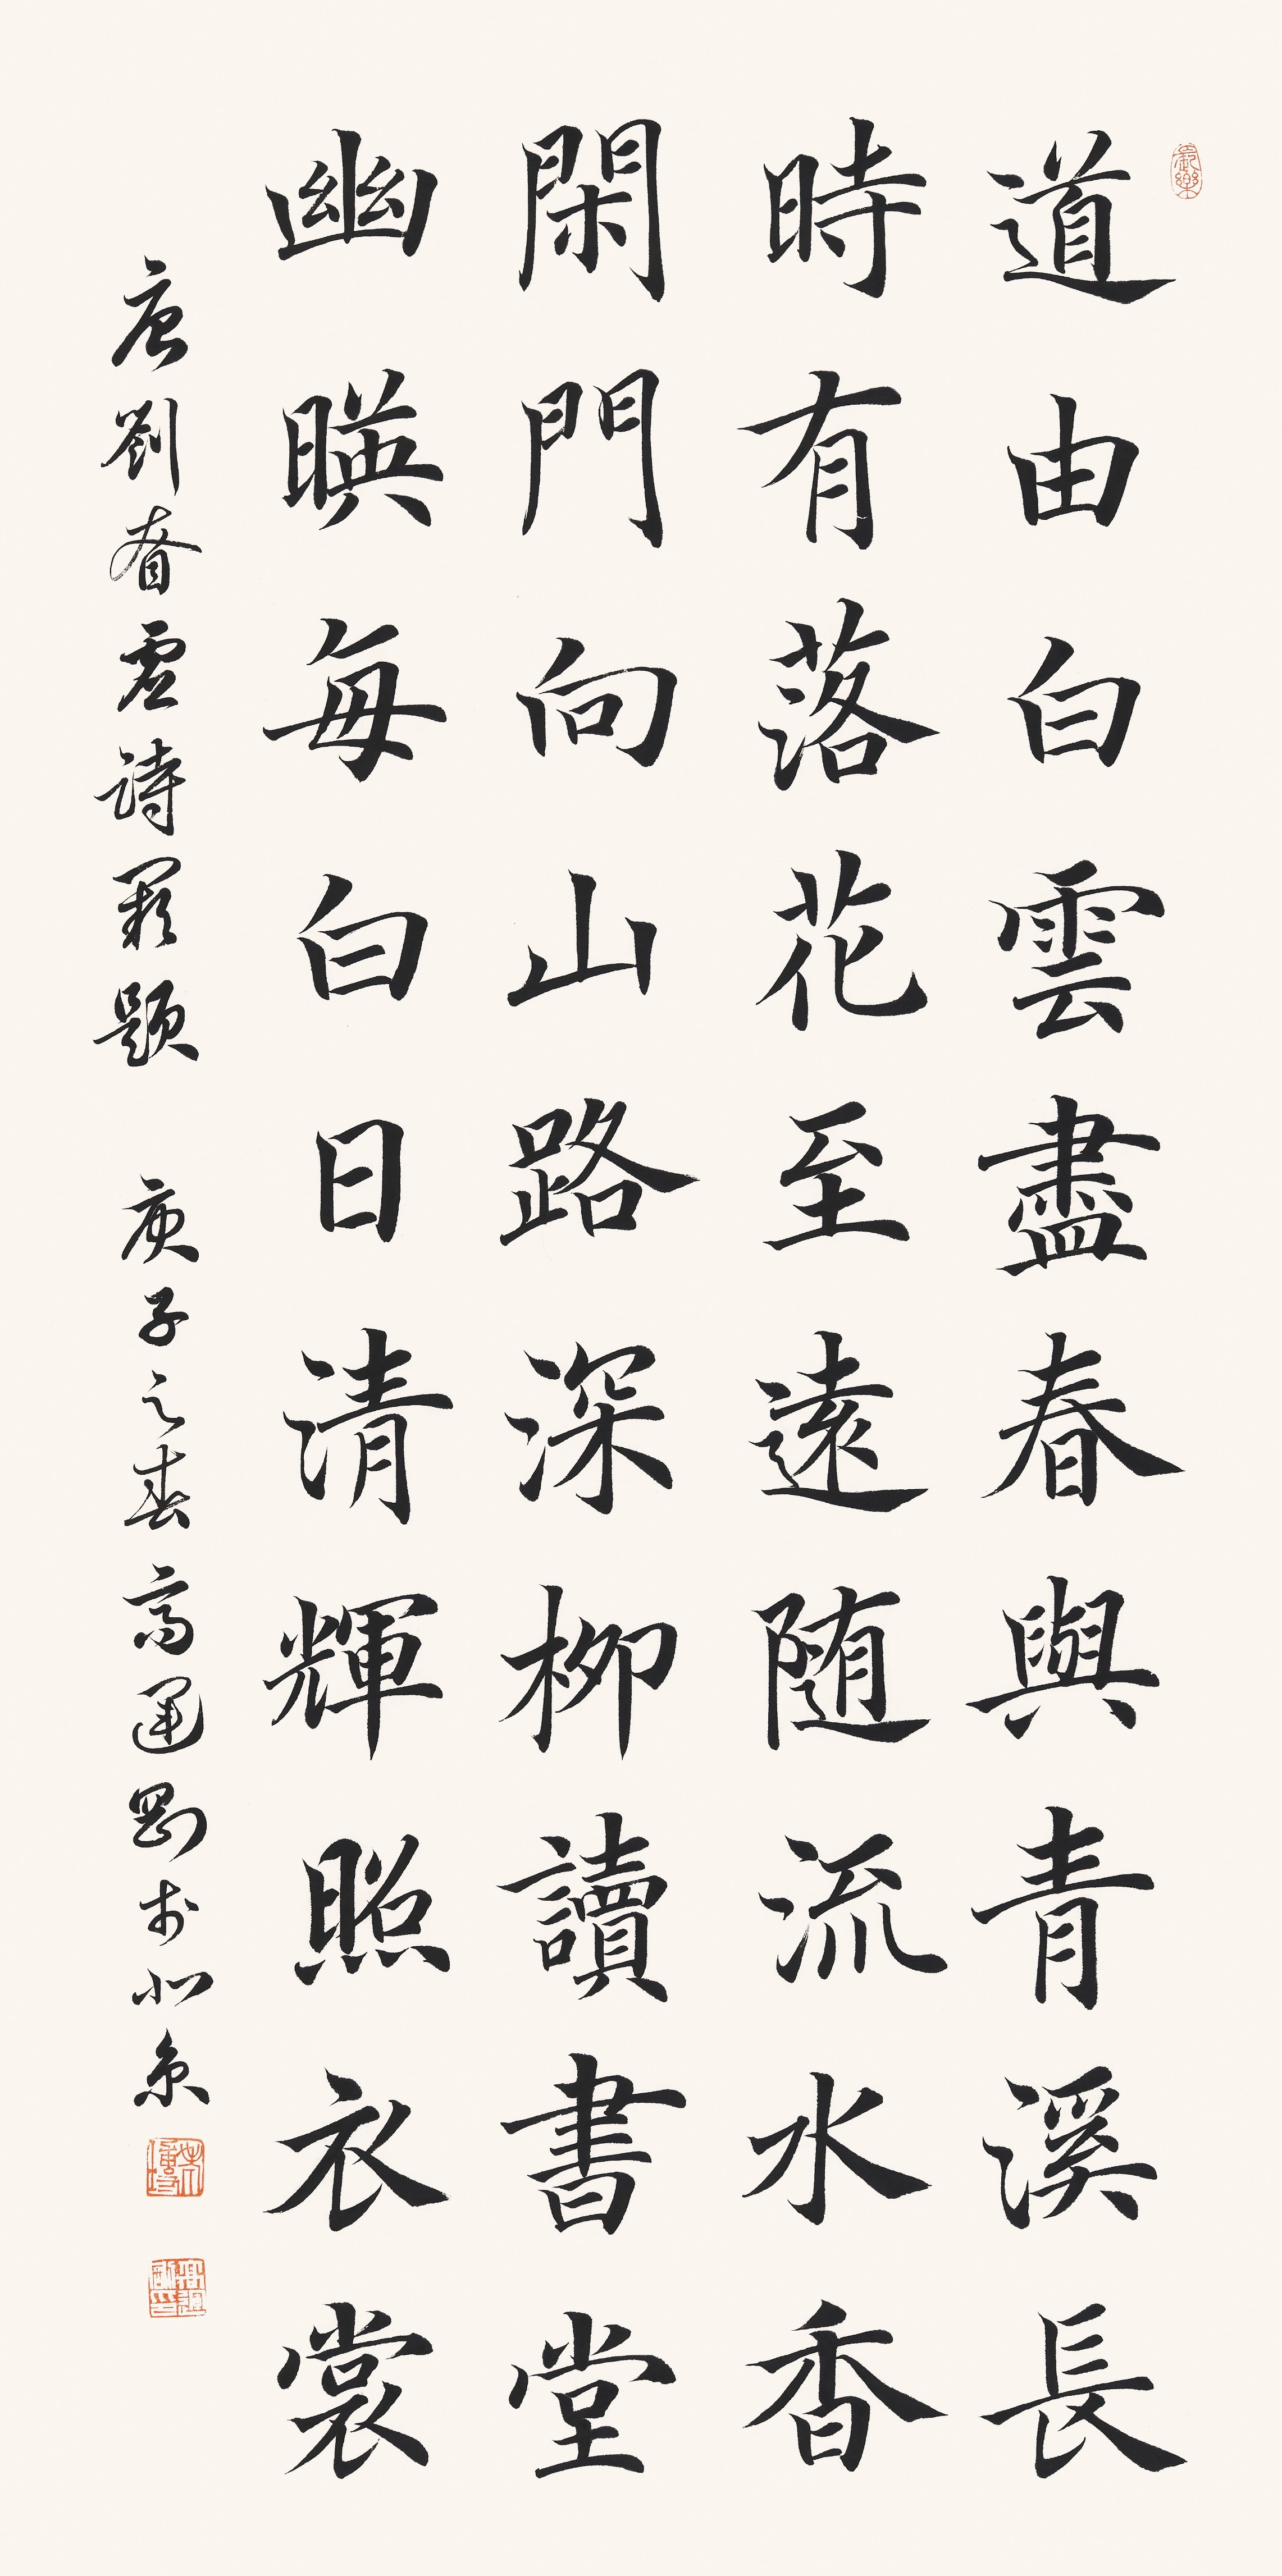 道由白雲盡春與青溪長
時有落花至遠随流水香
閑門向山路深柳讀書堂
幽暎每白日清輝照衣裳
唐劉眘虛詩闕題 庚子之春高運剛於北京